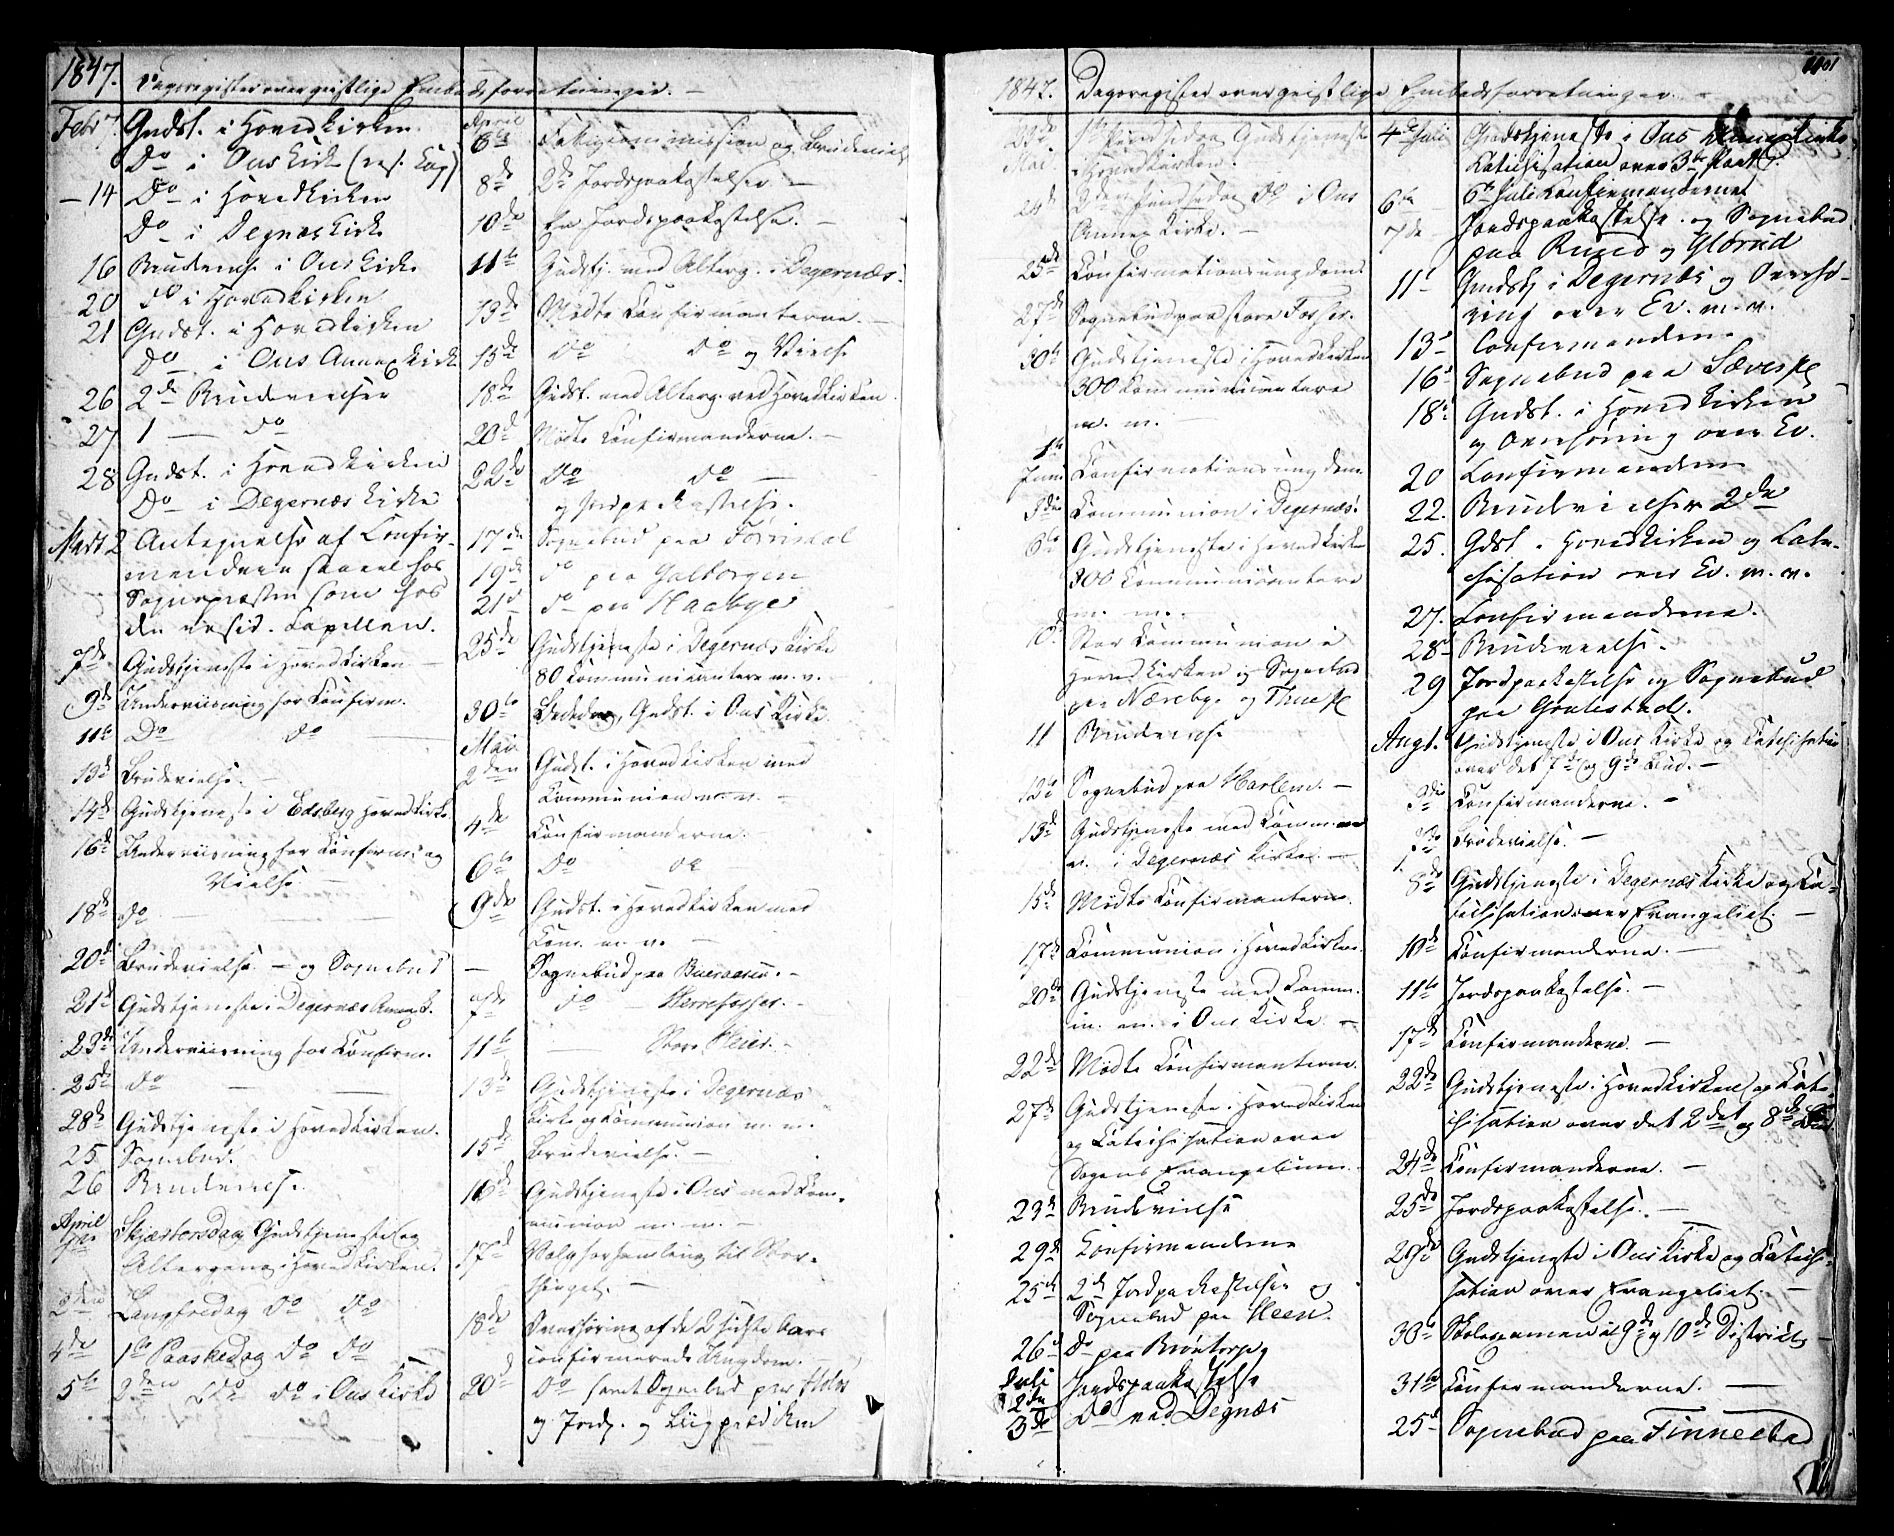 1847. Dagsregister over geistlige Embedsforretninger. —
Febr 7 Gudst. i Hovedkirken
Do i Ous Kirke (res: Cap)
— 14 Do i Hovedkirken
Do i Degnæs Kirke
16 Brudevielse i Ous Kirke
20 Do i Hovedkirken
21 Gudst. i Hovedkirken
Do i Ous Annexkirke
26 2de Brudevielser
27 1 — Do
28 Gudst. i Hovedkirken
Do i Degernæs Kirke
Marts 2 Antegnelse af Confir-
manderne saavel hos
Sognepræsten som hos
den resid. Capellan.
7de Gudstjeneste i Hovedkirken —
9de Underviisning for Confirm.
11te Do Do —
13de Brudevielse. —
14de Gudstjeneste i Edsberg Hovedkirke
16de Underviisning for Confirm: og
Vielse. —
18de Do —
20de Brudevielse. — og Sognebud
21de Gudstjeneste i Degernæs Annex K.
23de Underviisning for Confirm.
25de Do —
28de Gudstjeneste i Hovedkirken.
25 Sognebud.
26 Brudevielse.
April
1ste Skjærtorsdag Gudstjeneste og
Altergang i Hovedkirken.
2den Langfredag Do Do
4de 1ste Paaskedag Do Do
5te 2den Do Do i Ous Kirke
April
6te Fattigcommission og Brudevielse
8de 2de Jordspaakastelser. —
10de En Jordspaakastelse. —
11te Gudstj. med Alterg. i Degernæs.
13de Mødte Confirmanterne. —
15de Do Do og Vielse
18de Gudst. med Alterg. ved Hovedkirken.
20de Mødte Confirmanderne. —
22de Do Do —
og Jordpaakastelse.
17de Sognebud paa
19de Do paa
21de Do paa Haabye
25de Gudstjeneste i Degernæs Kirke
80 Communicantere m. v.
30te Bededag, Gudst. i Ous Kirke.
Mai
2den Gudst. i Hovedkirken med
Communion m. v. —
4de Confirmanderne. —
6te Do Do
9de Gudst. i Hovedkirken med
Com. m. v. —
— Sognebud paa Bueraasen. —
7de Do — Herrefosser. —
11te — Store Heier. —
13de Gudstjeneste i Degernæs
Kirke og Communion m. m. —
15de Brudevielse. —
16de Gudstjeneste i Ous med Com-
munion m. m. —
17de Valgforsamling til Stor-
thinget. —
18de Overhøring af de 2 sidste Aars
confirmerede Ungdom.
20de Do samt Sognebud paa
og Jordp. og Liigprædiken
1847. Dagsregister over geistlige Embedsforretninger. —
23de
Mai. 1ste Pindsedag Gudstjeneste
i Hovedkirken.
24de 2den Pindsedag Do i Ous
Annex Kirke. —
25de Confirmationsungdom.
27de Sognebud paa store Fosser.
30te Gudstjeneste i Hovedkirken
300 Communicantere
m. m.
1ste
Juni Confirmationsungdom.
3die Communion i Degernæs.
6te Gudstjeneste i Hovedkirken
300 Communicantere
m. m. —
Stor Communion i
Hovedkirken og Sognebud
paa Nærebye og
11 Brudevielse
12te Sognebud paa Harlem. —
13de Gudstjeneste med Comm. m
v. i Degernæs Kirke. —
15de Mødte Confirmanterne.
17de Communion i Hovedkirken.
20de Gudstjeneste med Comm.
m. m. i Ous Kirke —
22de Mødte Confirmanterne.
27de Gudstjeneste i Hovedkirken
og Catechisation over
Dagens Evangelium.
23de Brudevielse
29de Confirmanderne
25de 2de Jordpaakastelser og
Sognebud paa Heen.
26de Do paa Brøntorp
Juli
2den Jordspaakastelse
3de Do ved Degnæs
4de Juli Gudstjeneste i Ous Annexkirke
Catechisation over 3de Part.
6te 6te Juli Confirmanderne
7de Jordspaakastelse og Sognebud
paa Ruud og
11te Gudstj i Degernæs og Overhø-
ring over Ev. m. v.
13de Confirmanderne
16de Sognebud paa
18de Gudst. i Hovedkirken
og Overhøring over Ev.
20 Confirmanderne
22. Brudevielser 2de
25. Gdst i Hovedkirken og Cate-
chisation over Ev. m. v.
27. Confirmanderne.
28de Brudevielse.
29 Jordpaakastelse og Sognebud
paa
Augt. Gudstjeneste i Ous Kirke og Catechisation
over det 7de og 9de Bud. —
3die Confirmanderne. —
Brudevielse. —
8de Gudstjeneste i Degernæs Kirke og Ca-
techisation over Evangeliet. —
10de Confirmanderne. —
11te Jordspaakastelse. —
17de Confirmanderne. —
22de Gudstjeneste i Hovedkirken og Cate-
chisation over det 2det og 8de Bud.
24de Confirmanderne. —
25de Jordspaakastelse. —
29de Gudstjeneste i Ous Kirke og Catechi-
sation over Evangeliet. —
30te Skoleexamen i 9de og 10de District —
31te Confirmanderne. —
25de Sognebud paa Finnestad